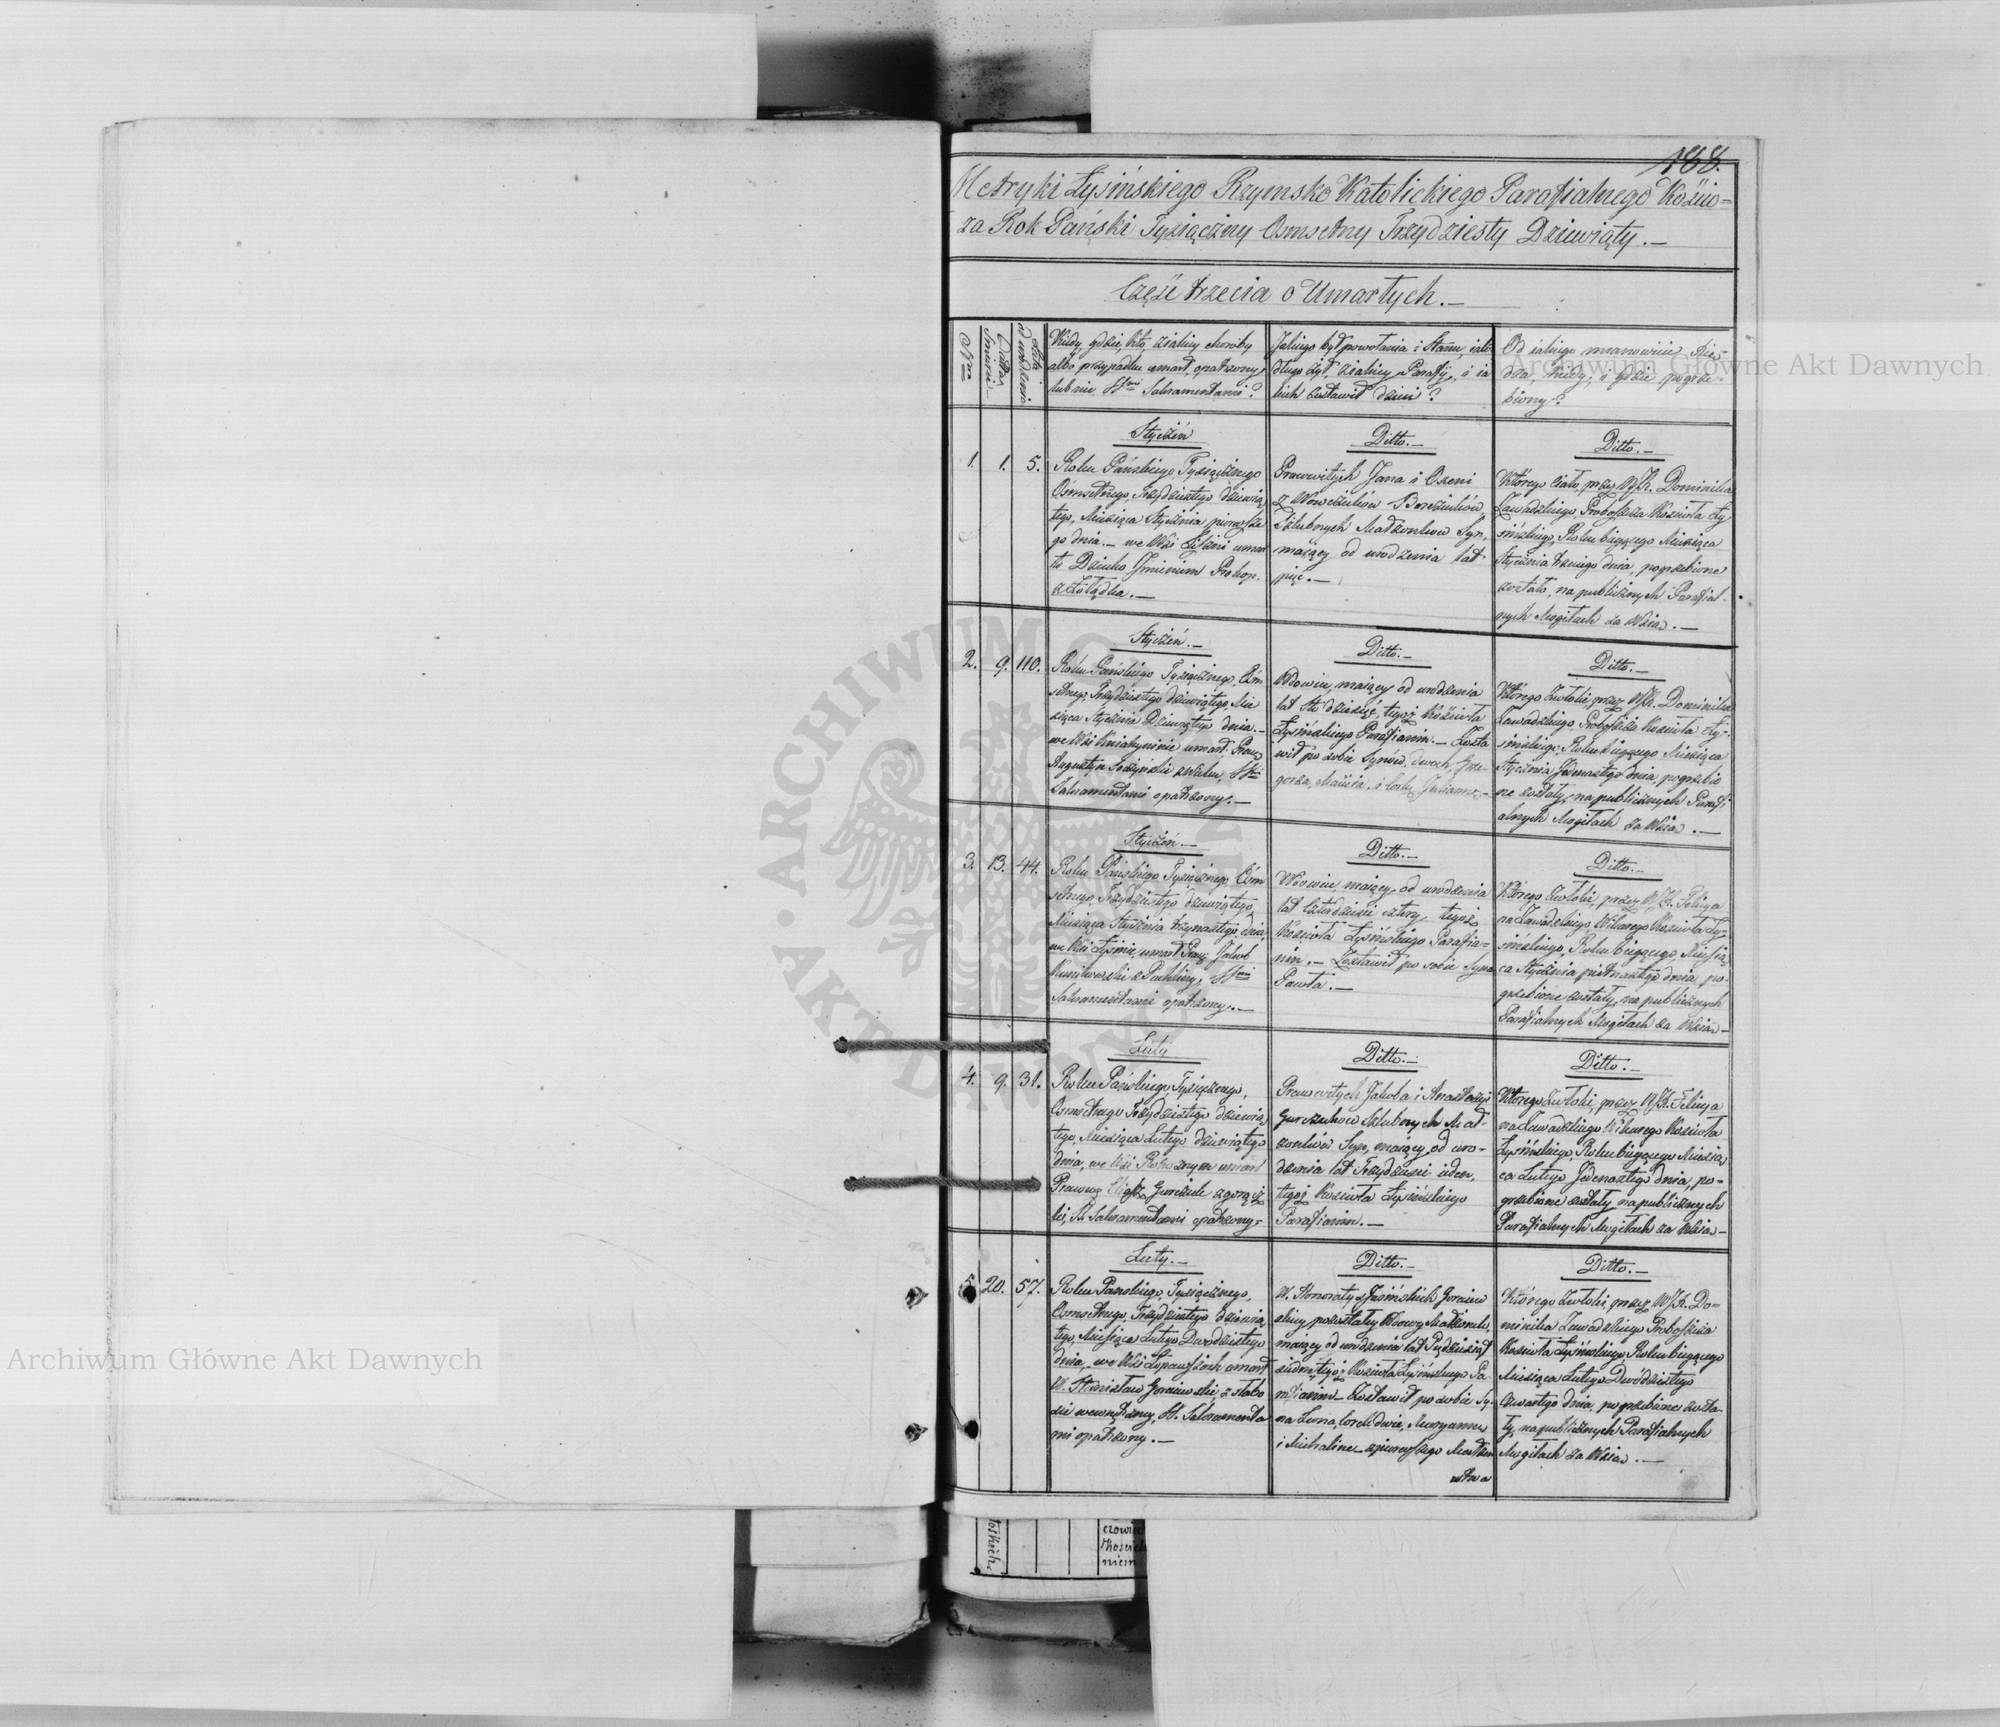 188.
Metryki Łysińskiego Rzymsko Katolickiego Parafialnego Kościo=
za Rok Pański Tysiączny Osmsetny Trzydziesty Dziewiąty.—
Część trzecia o Umarłych.—
Nro
Dattas Śmierci
Lata od urodzenia
Kiedy, gdzie, kto, z jakiey choroby
albo przypadku umarł, opatrzony
lub nie, Stmi Sakramentami?
Jakiego był powołania i Stanu, jak
długo żył z jakiey Parafij, i ja
kich zostawił dzieci?
Od jakiego mianowicie Xię-
dza, kiedy, i gdzie pogrze-
biony?
Styczeń
1. 1. 5.
Roku Pańskiego, Tysiącznego
Osmsetnego, Trzydziestego dziewią
tego, Miesiąca Stycznia pierwsze
go dnia.— we Wsi umar
ło Dziecko Imieniem Prokop.
z żołądka.—
Ditto.—
Prawowitych Jana i Oxeni
z
Szlubnych Małżonków Syn,
maiący od urodzenia lat
pięć.—
Ditto.—
Którego ciało, przez WJX. Dominika
Zawadzkiego, Proboszcza Kościoła Ły-
sińskiego, Roku bieżącego Miesiąca
Stycznia trzeciego dnia, pogrzebione
zostało, na publicznych Parafial-
nych Mogiłach za Wsią.—
Styczeń.—
2. 9. 110.
Roku Pańskiego Tysiącznego, Osm
setnego, Trzydziestego dziewiątego, Mie
siąca Stycznia Dziewiątego dnia.—
we Wsi Kniahyninie umarł, Prac.
Augustyn Stmi
Sakramentami opatrzony.—
Ditto.—
Wdowiec, maiący od urodzenia
lat sto dziesięć, tegoż Kościoła
Łysińskiego Parafianin.— Zosta
wił po sobie Synów, dwoch, Grze-
gorza, Macieia, i Corkę Juliannę.—
Ditto.—
Którego Zwłoki, przez WJX. Dominika
Zawadzkiego Proboszcza Kościoła Ły-
sińskiego, Roku bieżącego Miesiąca
Stycznia Jedenastego dnia, pogrzebio
ne zostały, na publicznych Parafi-
alnych Mogiłach za Wsią.—
Styczeń.—
3. 13. 44.
Roku Pańskiego Tysiącznego, Osm
setnego, Trzydziestego dziewiątego,
Miesiąca Stycznia trzynastego, dnia,
we Wsi Łysinie, umarł Prac. Jakob
z Puchliny, Stemi
Sakramentami opatrzony.—
Ditto.—
Wdowiec, maiący, od urodzenia
lat czterdzieści cztery, tegoż
Kościoła Łysińskiego Parafia=
nin.— Zostawił po sobie Syna
Pawła.—
Ditto.—
Którego Zwłoki, przez WJX. Felixa
na Zawadzkiego Wikarego Kościoła Ły-
sińskiego, Roku bieżącego Miesią
ca Stycznia piętnastego dnia po-
grzebione zostały, na publicznych
Parafialnych Mogiłach za Wsią.—
Luty
4. 9. 31.
Roku Pańskiego, Tysiącznego,
Osmsetnego Trzydziestego dziewią
tego, Miesiąca Lutego dziewiątego
dnia, we Wsi umarł
Pracow. Gurczuk z gorącz
ki, St. Sakramentami opatrzony=
Ditto.—
Prawowitych Jakoba i Anastazyi
Gurczukow Szlubnych Mał-
żonków Syn, maiący, od uro-
dzenia lat Trzydzieści ieden,
tegoż Kościoła Łysińskiego
Parafianin.—
Ditto.—
Którego Zwłoki, przez WJX. Felixya
na Zawadzkiego Wikarego Kościoła
Łysińskiego, Roku bieżącego Miesią
ca Lutego Jedenastego dnia, po-
grzebione zostały na publicznych
Parafialnych Mogiłach za Wsią.—
Luty.—
5. 20. 57.
Roku Pańskiego, Tysiącznego,
Osmsetnego, Trzydziestego dziewią
tego, Miesiąca Lutego Dwudziestego
dnia, we Wsi umarł
W. Stanisław z słabo
ści wewnętrzney, St. Sakramenta
mi opatrzony.—
Ditto.—
W. Honoraty z
pozostałey Wdowy Małżonek,
maiący od urodzenia lat Pięćdziesiąt
siedm, tegoż Kościoła Łysińskiego Pa-
rafianin.— Zostawił po sobie Sy-
na corek dwie, Maryannę
i Michalinę z pierwszego Małżeń
stwa
Ditto.—
Którego Zwłoki, przez WJX. Do-
minika Zawadzkiego Proboszcza
Kościoła Łysińskiego, Roku bieżącego
Miesiąca Lutego Dwódziestego
Czwartego dnia, pogrzebione zosta-
ły, na publicznych Parafialnych
Mogiłach za Wsią.—
czowie
Archiwum Główne Akt Dawnych
Archiwum Główne Akt Dawnych